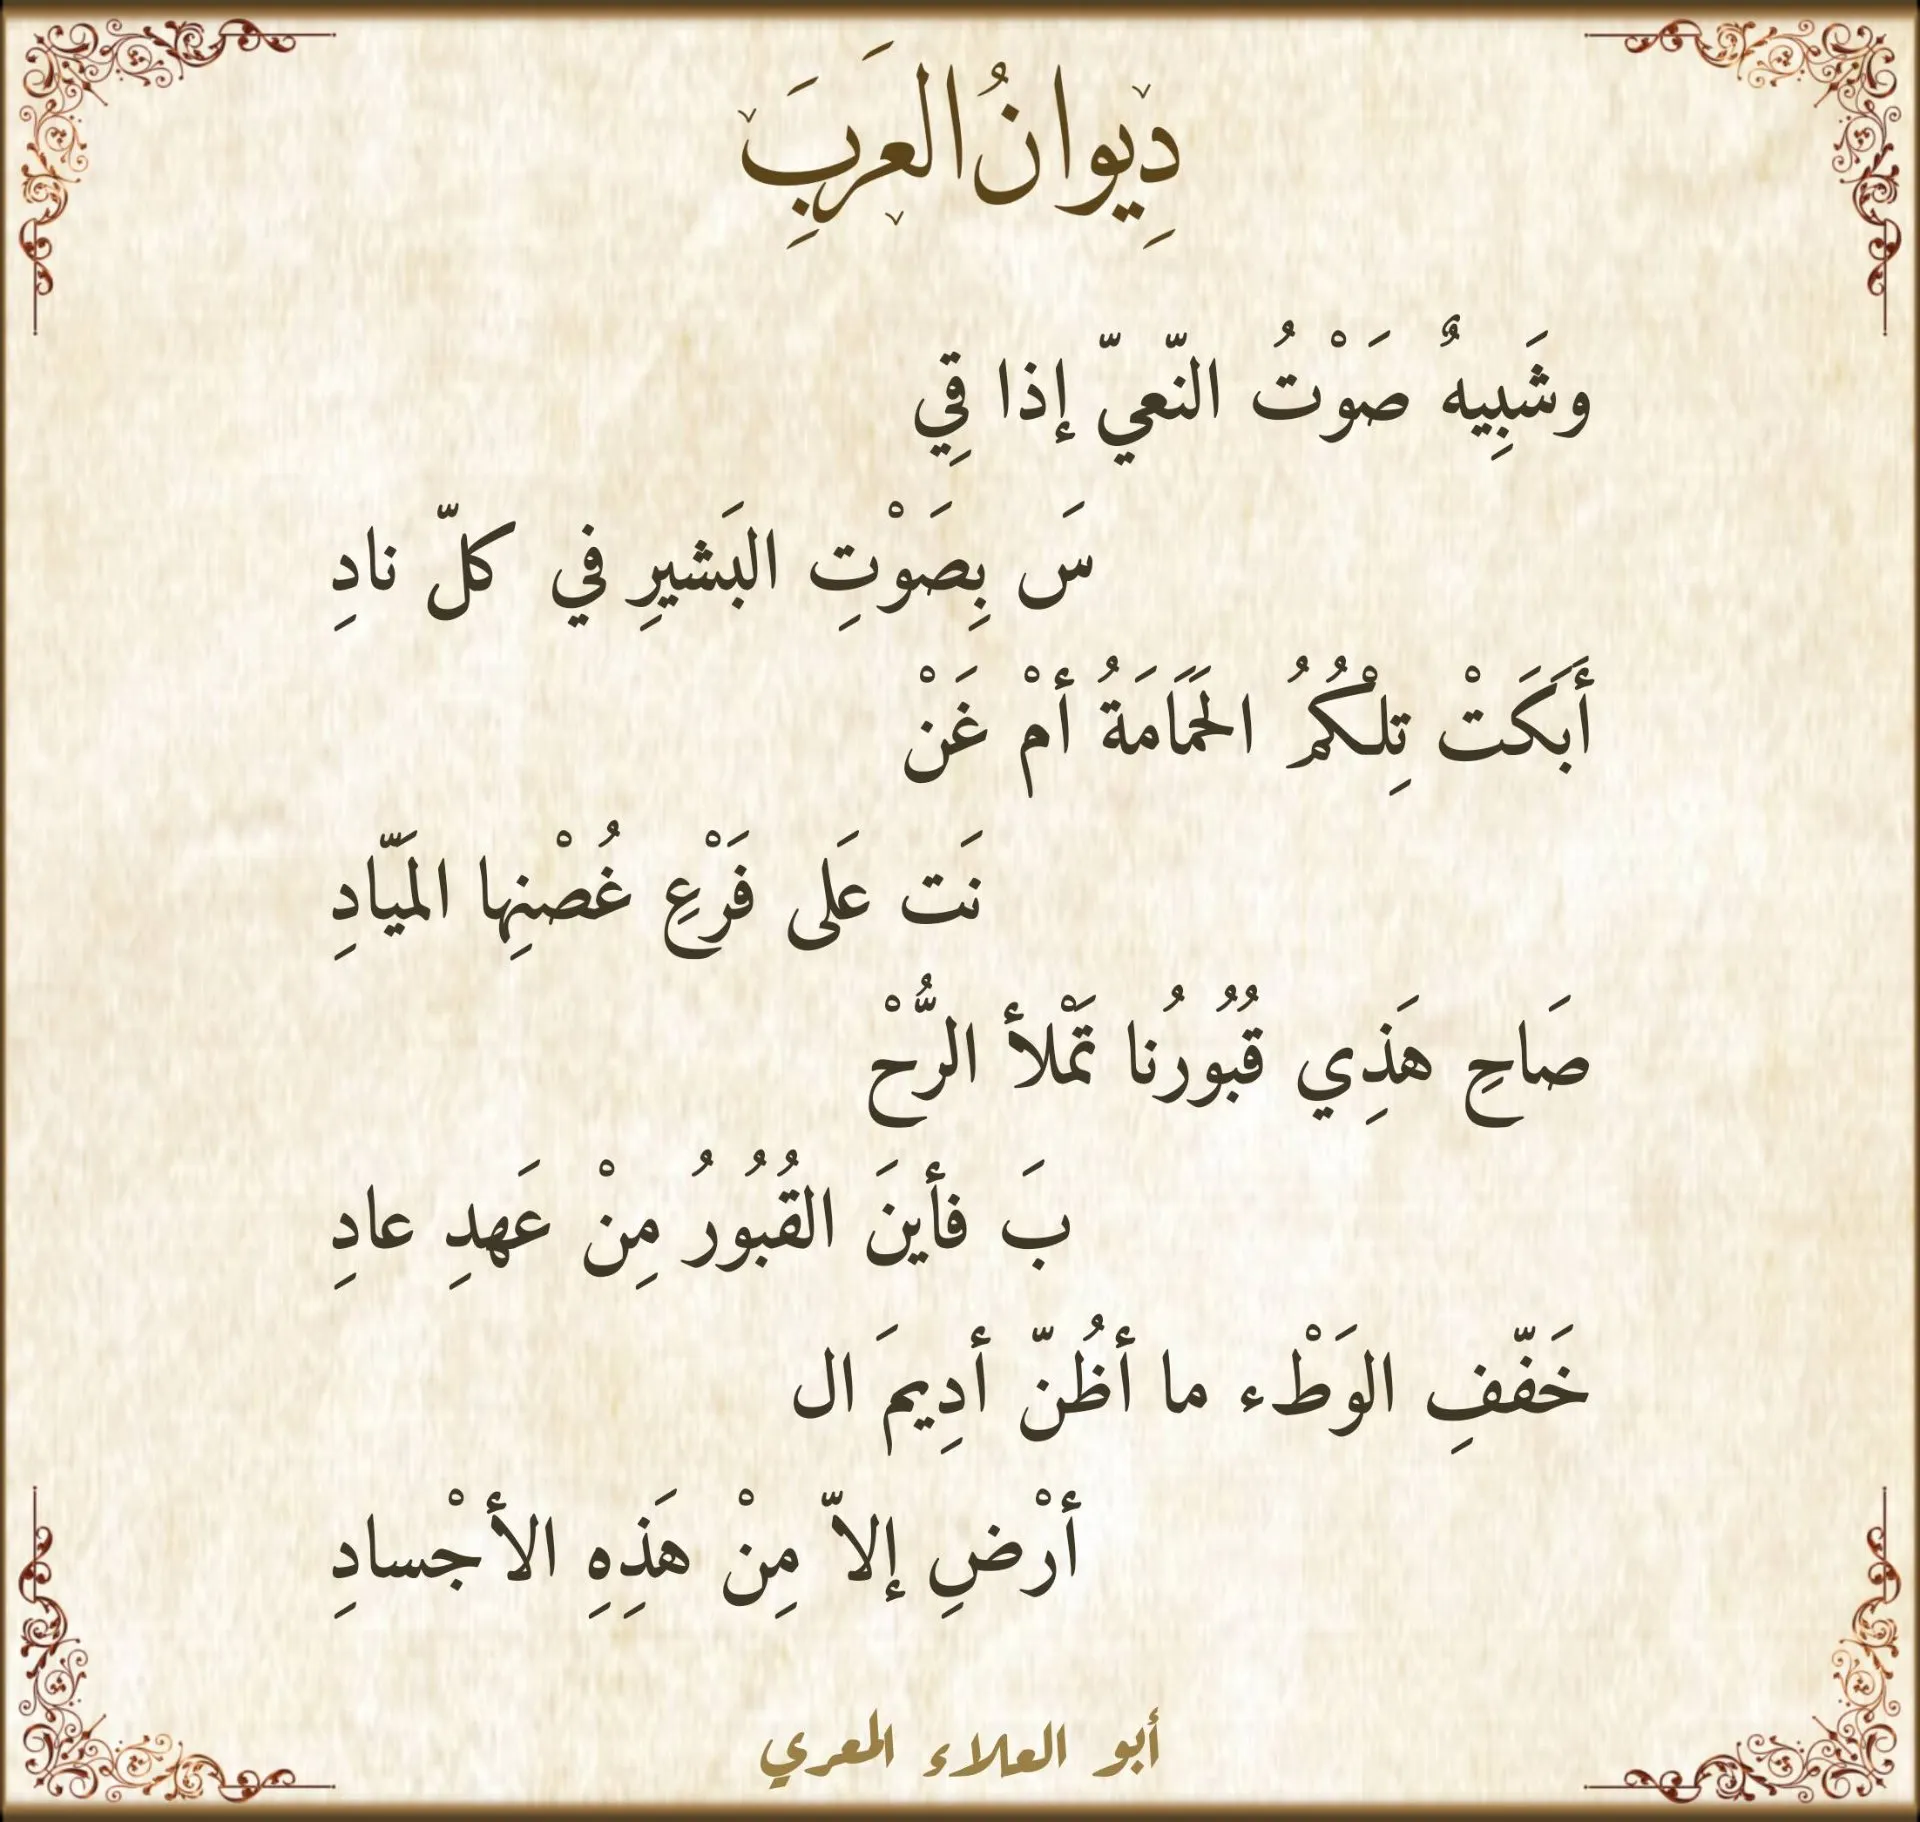 دِيوانُ العَرَبِ
وشَبِيهٌ صَوْتُ النّعيّ إذا قِي
سَ بِصَوْتِ البَشيرِ في كلّ نادِ
أَبَكَتْ تِلْكُمُ الحَمَامَةُ أمْ غَنْ
نَت عَلى فَرْعِ غُصْنِها المَيّادِ
صَاحِ هَذِي قُبُورُنا تَمْلأ الرُّحْ
بَ فأينَ القُبُورُ مِنْ عَهدِ عادِ
خَفّفِ الوَطْء ما أظُنّ أدِيمَ ال
أرْضِ إلاّ مِنْ هَذِهِ الأجْسادِ
أبو العلاء المعري